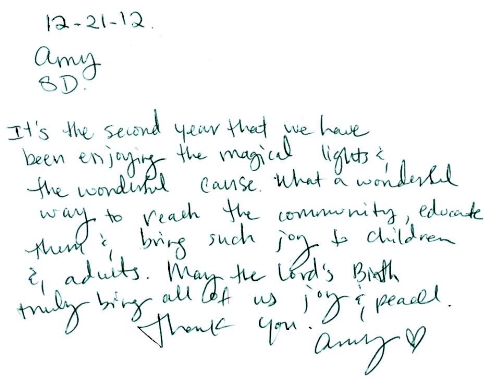 12-21-12.
Amy
SD.
It's the second year that we have
been enjoying the magical lights &
the wonderful cause. What a wonderful
way to reach the community, educate
them & bring such joy to children
& adults. May the Lord's Birth
truly bring all of us joy & peace.
Thank you.
Amy ♡